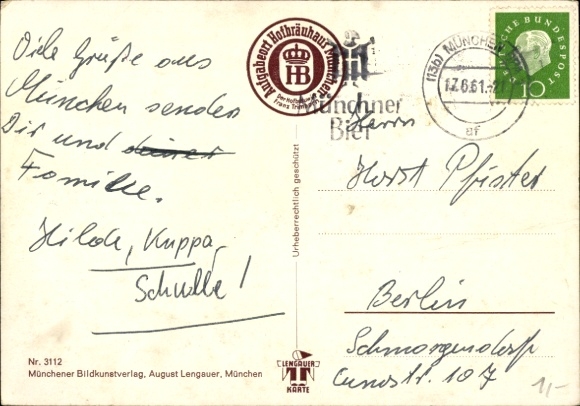 Viele Grüße aus
München senden
Dir und deiner
Familie.
Hilde, Kuppa,
Schulle!
Nr. 3112
Münchener Bildkunstverlag, August Lengauer, München
Aufgabeort Hofbräuhaus München
HB
Der Hofbräuwirt
Münchner
Bier
Urheberrechtlich geschützt
LENGAUER
KARTE
(13b) MÜNCHEN
17.6.61.-21
af
DEUTSCHE BUNDESPOST
10
Herrn
Horst Pfister
Berlin
Schmargendorf
Cunostr. 107
1,-